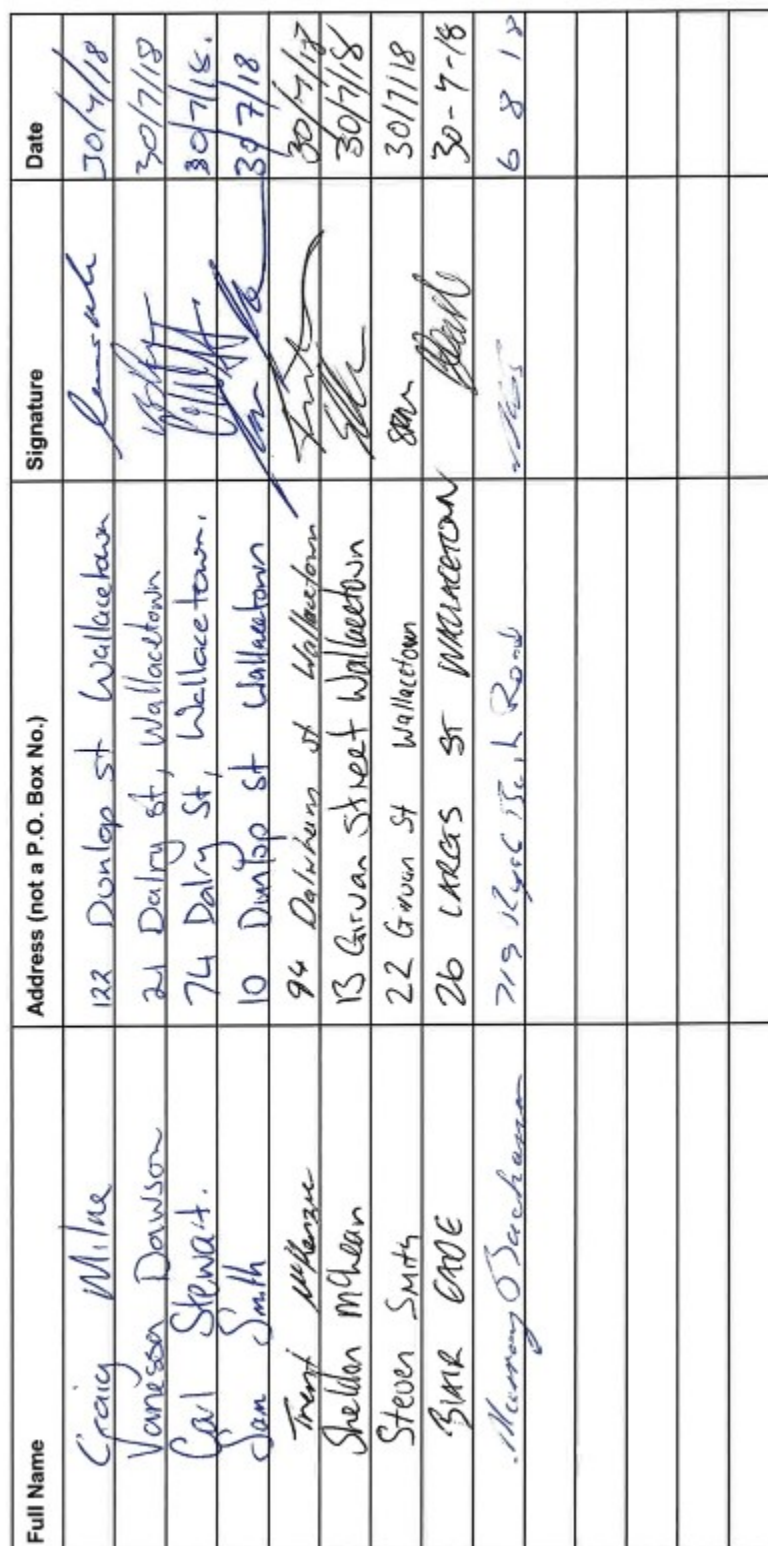 Full Name Address (not a P.O. Box No.) Signature Date
Craig Milne 122 Dunlop st Wallacetown 30/7/18
Vanessa Dawson 21 Dalry st, Wallacetown 30/7/18
Carl Stewart. 74 Dalry St, Wallacetown. 30/7/18.
Sam Smith 10 Dunlop St Wallacetown 30/7/18
Trent McKenzie 94 st Wallacetown 30/7/18
Sheldon McLean 13 Girvan Street Wallacetown 30/7/18
Steven Smith 22 Girvan St Wallacetown 30/7/18
BLAIR 26 LARGS ST WALLACETOWN 30-7-18
Murray Buchanan 719 Road 6 8 18